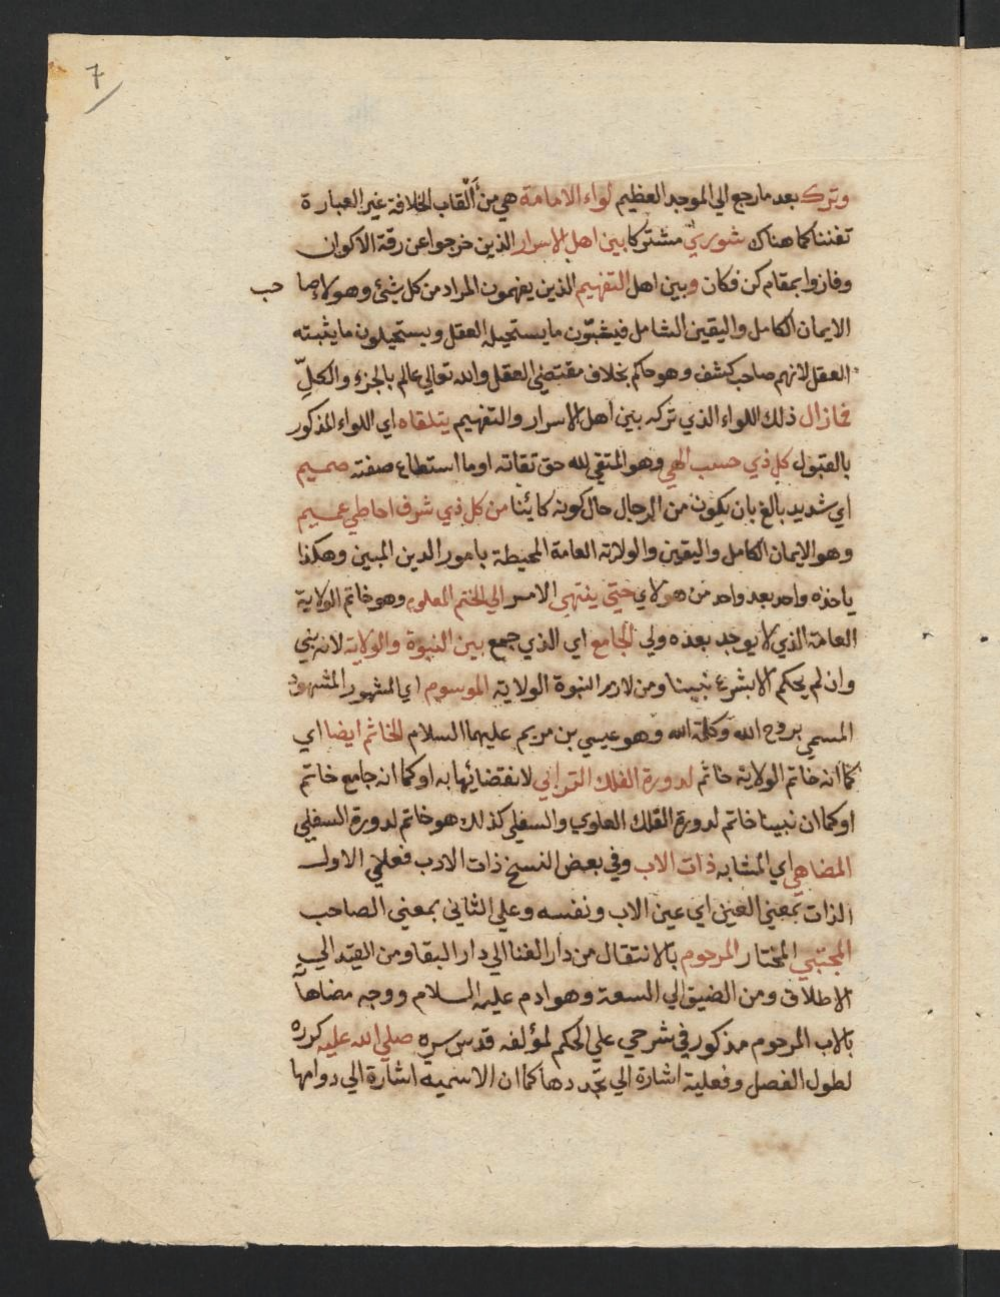 7
وترك بعد ما رجع الي الموجد العظيم لواء الامامة هي من ألقاب الخلافة غير العبارة
تفننا كما هناك شوري مشتركا بين اهل الاسرار الذين خرجوا عن رقة الاكوان
وفازوا بمقام كن فكان وبين اهل التفهيم الذين يفهمون المراد من كل شيئ وهولاء صا حب
الايمان الكامل واليقين الشامل فيثبتون ما يستحيله العقل ويستحيلون ما يثبته
العقل لانهم صاحب كشف وهو حاكم بخلاف مقتضي العقل والله توالي عالم بالجزء والكلّ
فمازال ذلك اللواء الذي تركه بين اهل الاسرار والتفهيم يتلقاه اي اللواء المذكور
بالقبول كل ذي حسب الهي وهو المتقي لله حق تقاته او ما استطاع صفته صميم
اي شديد بالغ بان يكون من الرجال حال كونه كائنا من كل ذي شرف احاطي عميم
وهو الايمان الكامل واليقين والولاته العامة المحيطة بامور الدين المبين وهكذا
ياخذه واحد بعد واحد من هولاي حتي ينتهي الامر الي الختم المعلوم وهو خاتم الولاية
العامة الذي لا يوجد بعده ولي الجامع اي الذي جمع بين النبوة والولاية لانه نبي
وان لم يحكم الا بشرع نبينا ومن لازم النبوة الولاية الموسوم اي المشهور المشهود
المسمي بروح الله وكلمة الله وهو عيسي بن مريم عليهما السلام الخاتم ايضا اي
كما انه خاتم الولاية خاتم لدورة الفلك الترابي لانقضائها به او كما انه جامع خاتم
او كما ان نبينا خاتم لدورة الفلك العلوي والسفلي كذلك هو خاتم لدورة السفلي
المضاهي اي المشابه ذات الاب وفي بعض النسخ ذات الادب فعلي الاول
الذات بمعني العين اي عين الاب ونفسه وعلي الثاني بمعني الصاحب
المجتبي المختار المرحوم بالانتقال من دار الفنا الي دار البقا ومن القيد الي
الاطلاق ومن الضيق الي السعة وهو ادم عليه السلام ووجه مضاهاة
بالاب المرحوم مذكور في شرحي علي الحكم لمؤلفه قدس سره صلي الله عليه كرره
لطول الفصل وفعلية اشارة الي تجددها كما ان الاسمية اشارة الي دوامها